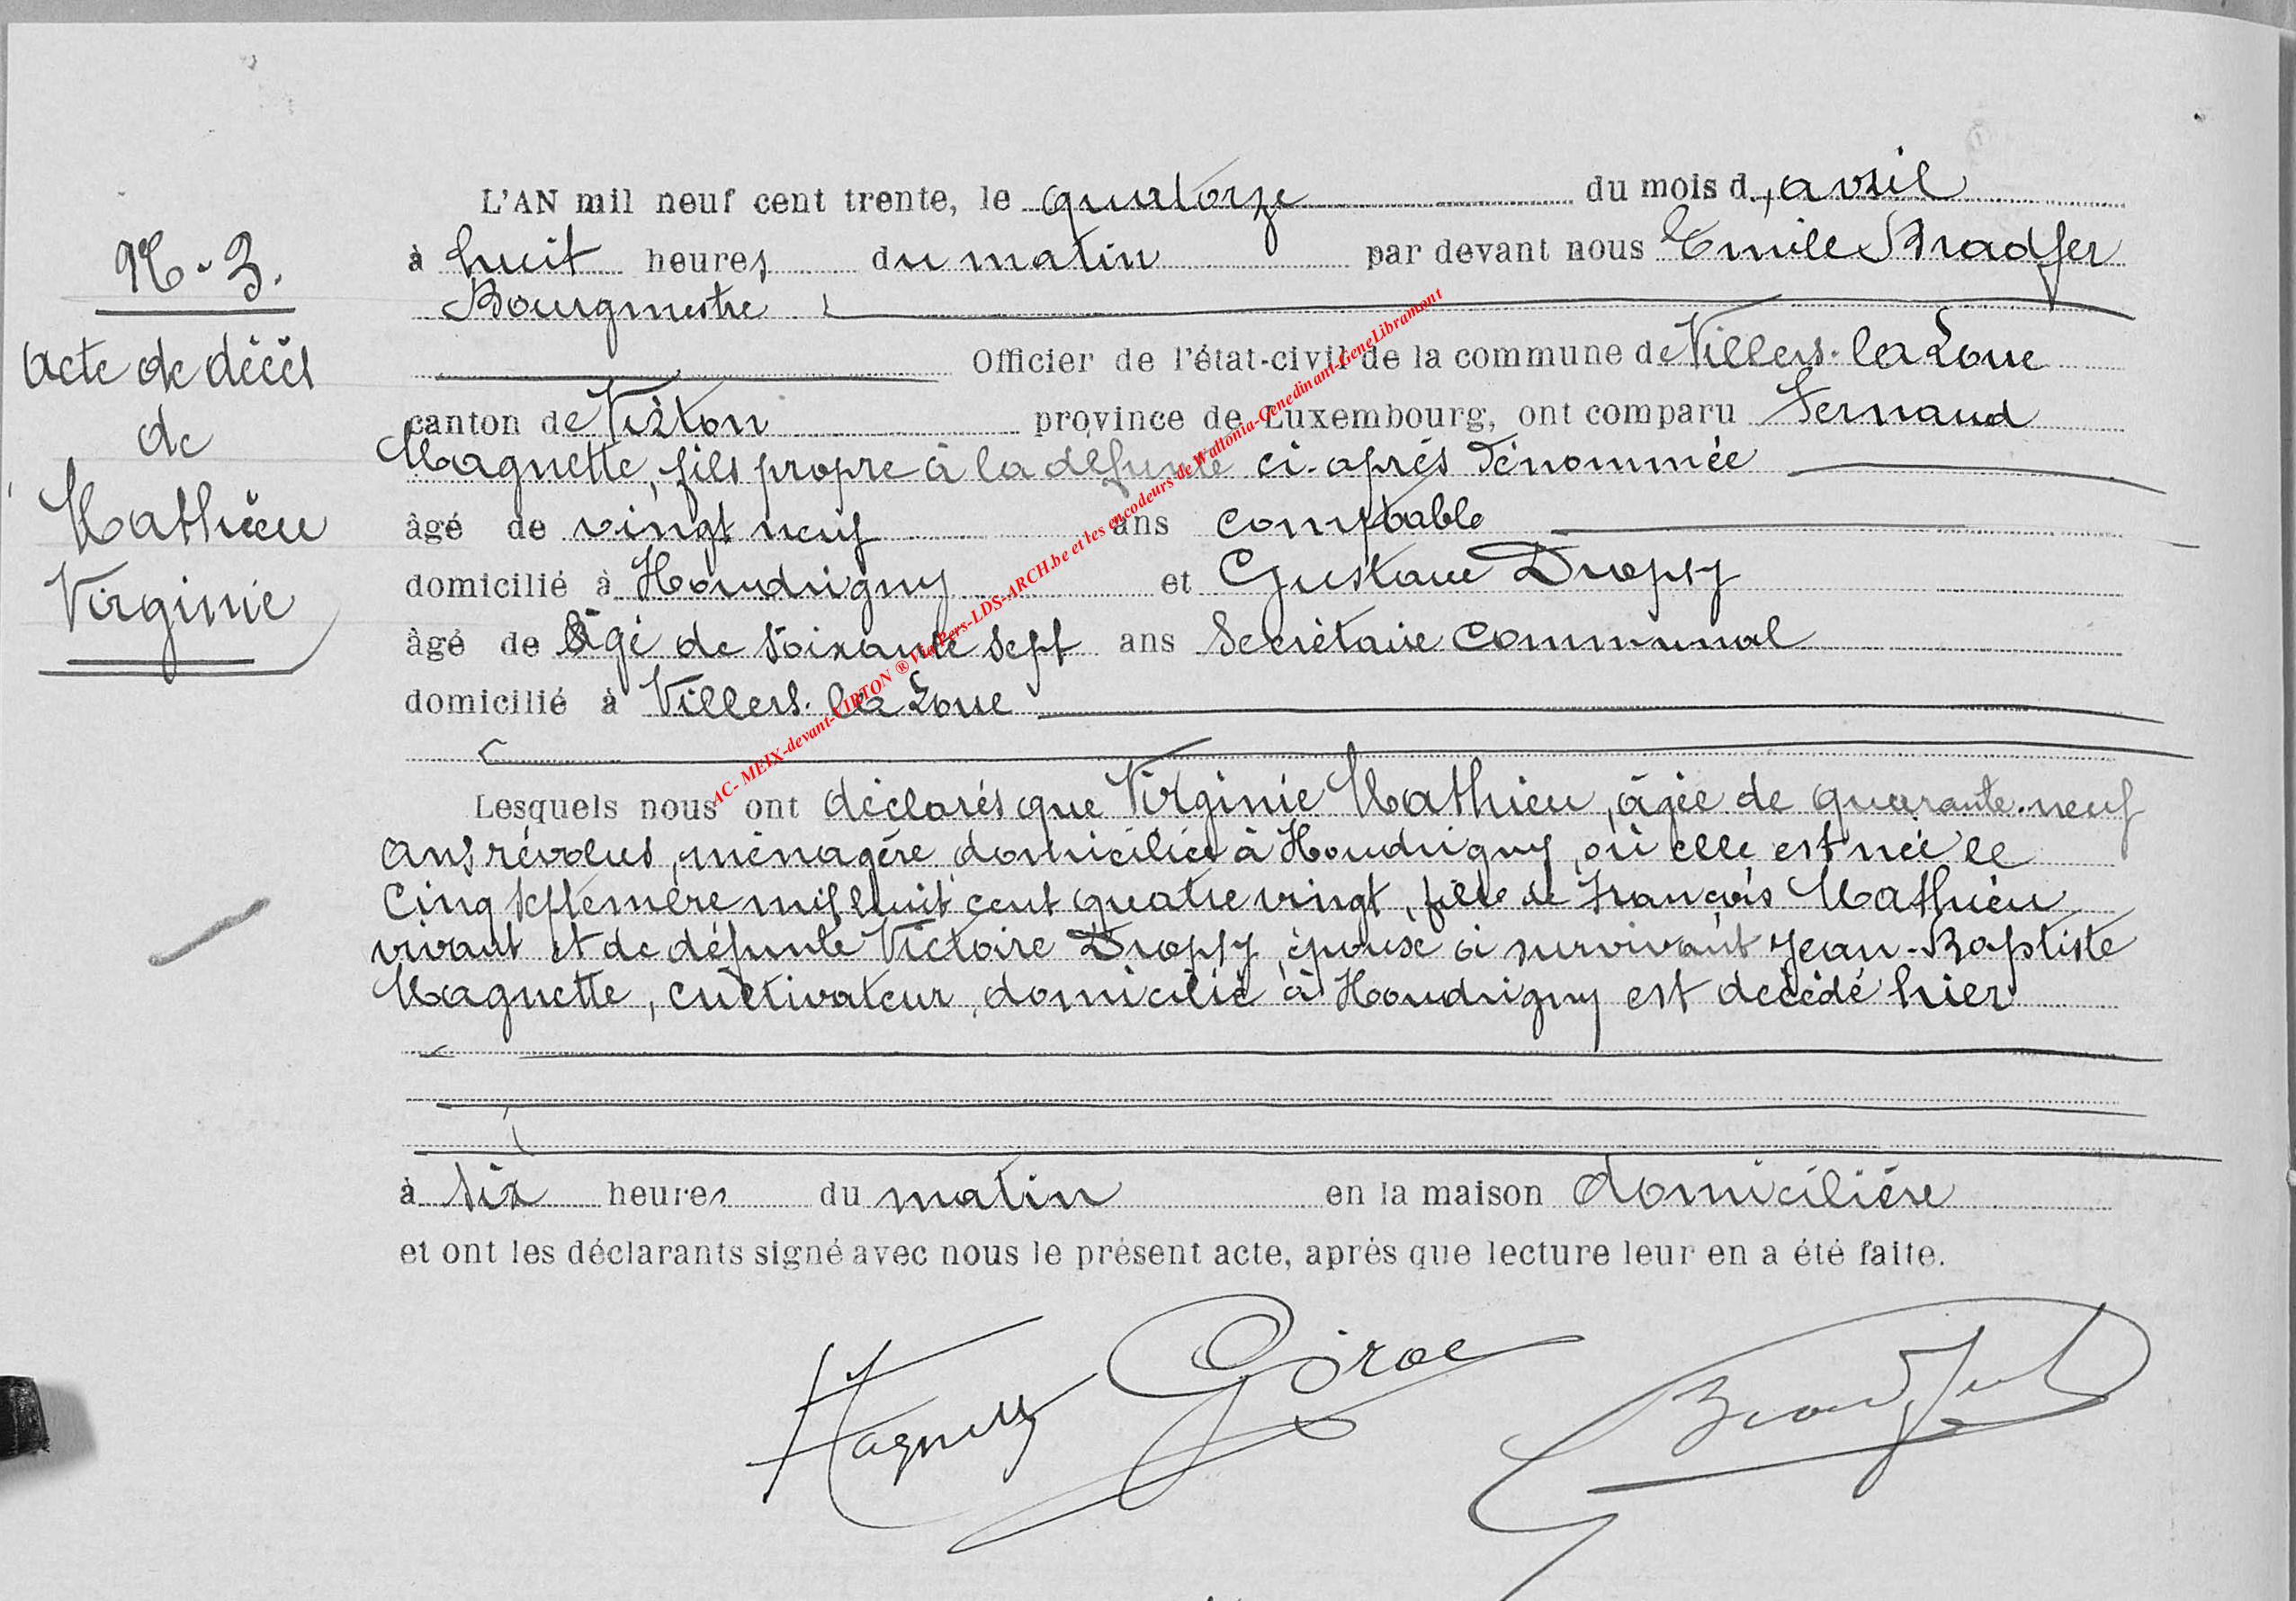 N-3.
Acte de décès
de
Mathieu
Virginie
L'AN mil neuf cent trente, le quatorze du mois d'avril
à huit heures du matin par devant nous Emile Bradfer
Bourgmestre
Officier de l'état-civil de la commune de Villers-la-Loue
canton de Virton province de Luxembourg, ont comparu Fernand
Magnette, fils propre à la défunte ci-après dénommée
âgé de vingt neuf ans comptable
domicilié à Houdrigny et Gustave Dropsy
âgé de âgé de soixante sept ans secrétaire communal
domicilié à Villers-la-Loue
Lesquels nous ont déclarés que Virginie Mathieu, âgée de quarante-neuf
ans révolus, ménagère, domiciliée à Houdrigny, où elle est née le
cinq septembre mil huit cent quatre vingt, fille de François Mathieu
vivant et de défunte Victoire Dropsy, épouse à survivant Jean-Baptiste
Magnette, cultivateur, domicilié à Houdrigny est décédé hier
à six heures du matin en la maison domicilière
et ont les déclarants signé avec nous le présent acte, après que lecture leur en a été faite.
Bradfer
AC- MEIX-devant-VIRTON ® Via Pers-LDS-ARCH.be et les encodeurs de Wallonia-Genedinant-GeneLibramont